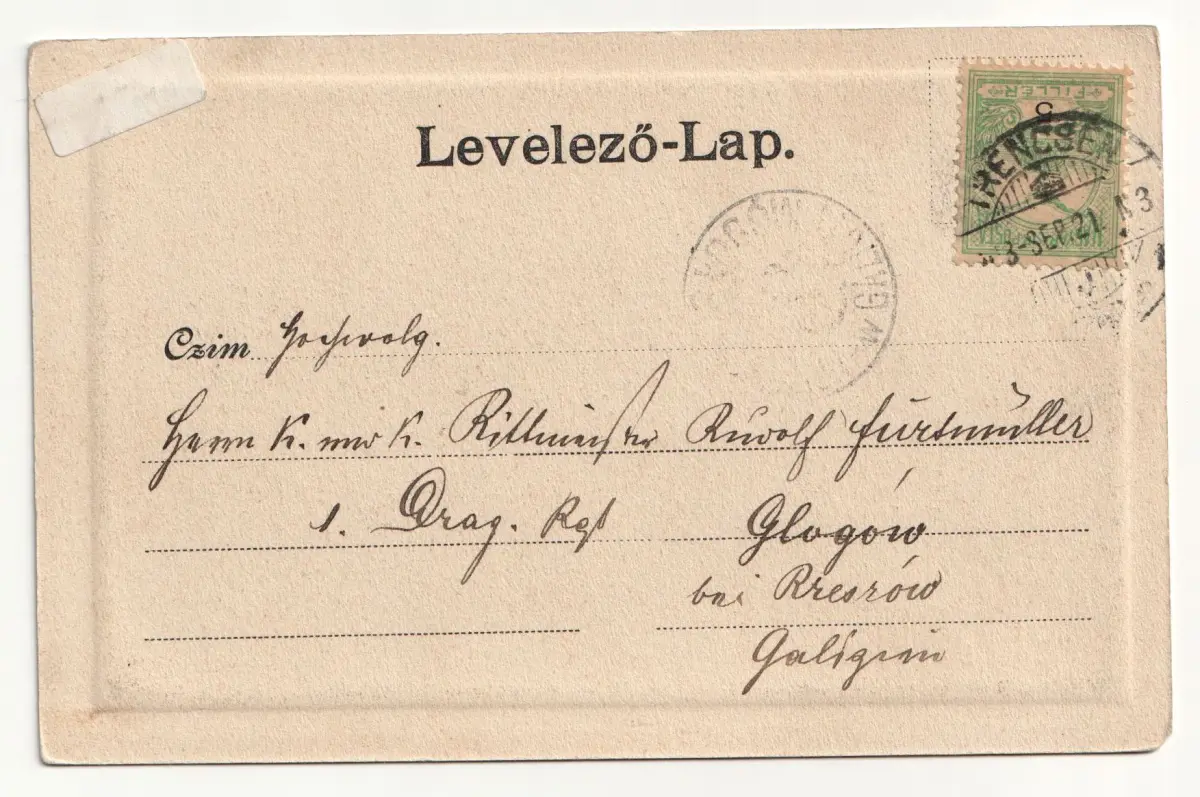 Levelező-Lap.
FILLÉR
5
TRENCSÉN
SEP. 21
GŁOGÓW
Czim Hochwolg.
Herrn K. und K. Rittmeister Rudolf Fürtmüller
1. Drag. Rgt Glogów
bei Rzeszów
Galizien